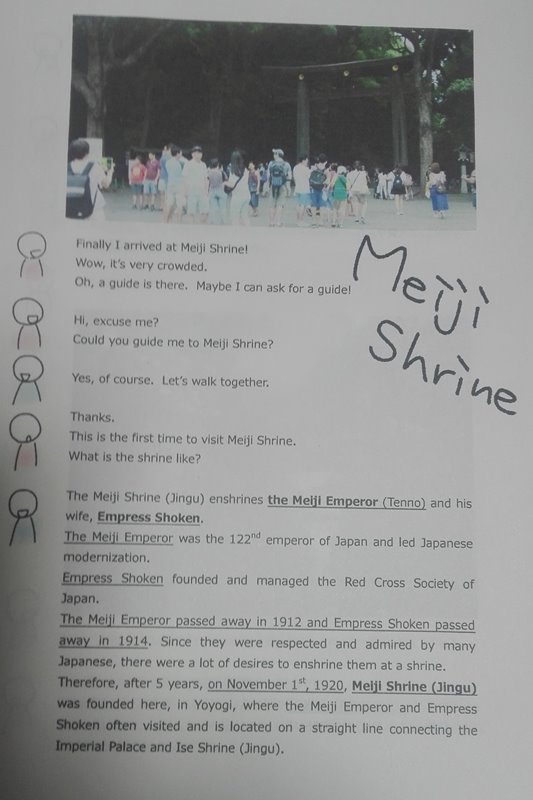 Meiji
Shrine
Finally I arrived at Meiji Shrine!
Wow, it's very crowded.
Oh, a guide is there. Maybe I can ask for a guide!
Hi, excuse me?
Could you guide me to Meiji Shrine?
Yes, of course. Let's walk together.
Thanks.
This is the first time to visit Meiji Shrine.
What is the shrine like?
The Meiji Shrine (Jingu) enshrines the Meiji Emperor (Tenno) and his
wife, Empress Shoken.
The Meiji Emperor was the 122nd emperor of Japan and led Japanese
modernization.
Empress Shoken founded and managed the Red Cross Society of
Japan.
The Meiji Emperor passed away in 1912 and Empress Shoken passed
away in 1914. Since they were respected and admired by many
Japanese, there were a lot of desires to enshrine them at a shrine.
Therefore, after 5 years, on November 1st, 1920, Meiji Shrine (Jingu)
was founded here, in Yoyogi, where the Meiji Emperor and Empress
Shoken often visited and is located on a straight line connecting the
Imperial Palace and Ise Shrine (Jingu).